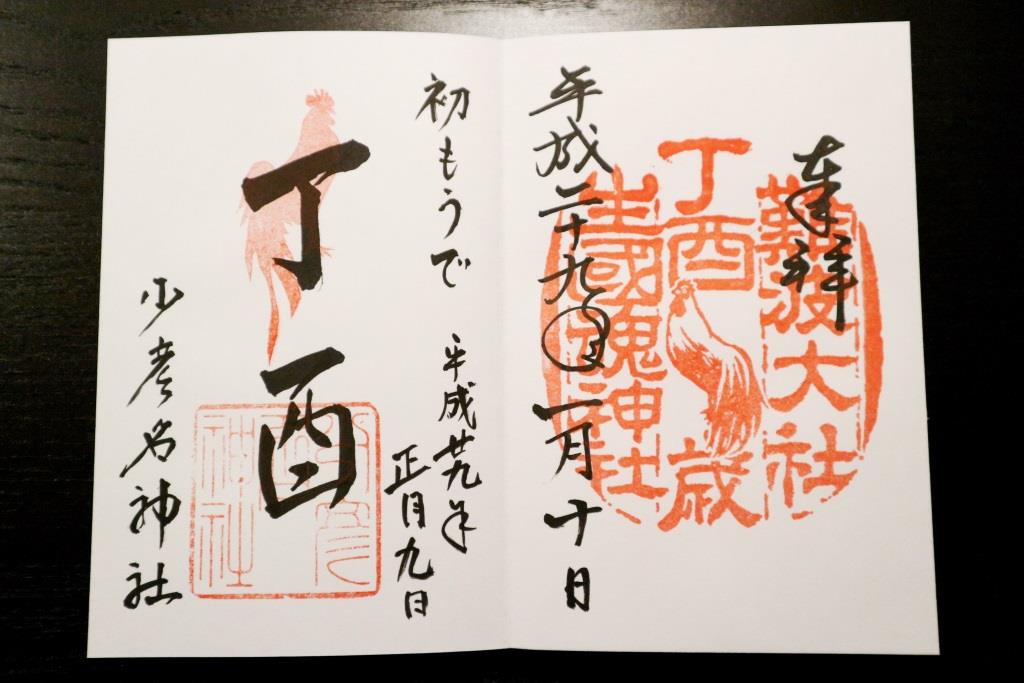 奉拝
難波大社
丁酉歳
生國魂神社
平成二十九年一月十日
初もうで
平成廿九年
正月九日
丁酉
少彦名神社